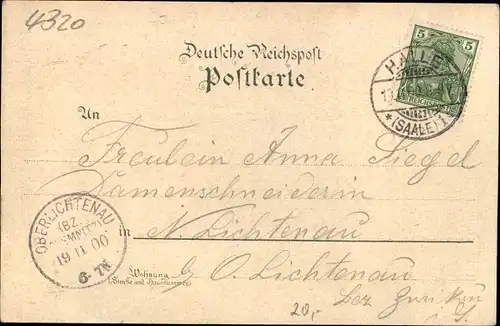 4320
5 5
Deutsche Reichspost
Postkarte
HALLE
*(SAALE) 1
An
Fräulein Anna Siegel
Damenschneiderin
in N. Lichtenau
OBERLICHTENAU
(BZ. CHEMNITZ)
19 11 00
6-7N
b/ O. Lichtenau
Wohnung
(Straße und Hausnummer)
Bez
20,-